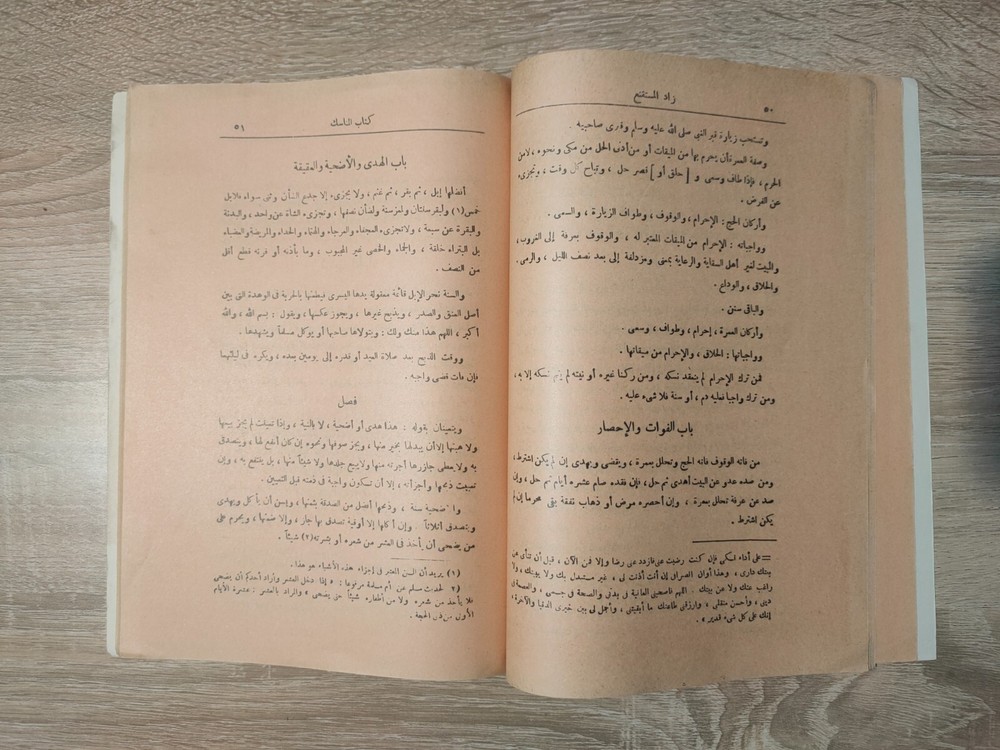 زاد المستقنع
٥٠
وتستحب زيارة قبر النبي صلى الله عليه وسلم وقبرى صاحبيه .
وصفة العمرة أن يحرم بها من الميقات أو من أدنى الحل من مكى ونحوه ، لا من
الحرم ، فإذا طاف وسعى و [ حلق أو ] قصر حل ، وتباح كل وقت ، وتجزىء
عن الفرض .
وأركان الحج : الإحرام ، والوقوف ، وطواف الزيارة ، والسعى .
وواجباته : الإحرام من الميقات المعتبر له ، والوقوف بعرفة إلى الغروب ،
والمبيت لغير أهل السقاية والرعاية بمنى ومزدلفة إلى بعد نصف الليل ، والرمى .
والحلاق ، والوداع .
والباقى سنن .
وأركان العمرة ، إحرام ، وطواف ، وسعى .
وواجباتها : الحلاق ، والإحرام من ميقاتها .
فمن ترك الإحرام لم ينعقد نسكه ، ومن ركنا غيره أو نيته لم يتم نسكه إلا به ،
ومن ترك واجبا فعليه دم ، أو سنة فلا شىء عليه .
باب الفوات والإحصار
من فاته الوقوف فاته الحج وتحلل بعمرة ، ويقضى ويهدى إن لم يكن اشترط ،
ومن صده عدو عن البيت أهدى ثم حل ، فإن فقده صام عشرة أيام ثم حل ، وإن
صد عن عرفة تحلل بعمرة ، وإن أحصره مرض أو ذهاب نفقة بقى محرما إن لم
يكن اشترط .
== على أداء نسكى فإن كنت رضيت عنى فازدد عنى رضا وإلا فمن الآن ، قبل أن تنأى عن
بيتك دارى ، وهذا أوان انصرافى إن أذنت لى ، غير مستبدل بك ولا ببيتك ، ولا
راغب عنك ولا عن بيتك . اللهم فاصحبنى العافية فى بدنى والصحة فى جسمى ، والعصمة فى
دينى ، وأحسن منقلبى ، وارزقنى طاعتك ما أبقيتنى ، واجمع لى بين خيرى الدنيا والآخرة ،
إنك على كل شىء قدير » .
كتاب المناسك
٥١
باب الهدى والأضحية والعقيقة
أفضلها إبل ، ثم بقر ، ثم غنم ، ولا يجزىء إلا جذع الضأن وثنى سواه فالإبل
خمس(١) ولبقر سنتان ولمعز سنة ولضأن نصفها ، وتجزىء الشاة عن واحد ، والبدنة
والبقرة عن سبعة ، ولا تجزىء العجفاء والعرجاء والهتماء والجداء والمريضة والعضباء
بل البتراء خلقة ، والجماء ، والخصى غير المجبوب ، وما بأذنه أو قرنه قطع أقل
من النصف .
والسنة نحر الإبل قائمة معقولة يدها اليسرى فيطعنها بالحربة فى الوهدة التى بين
أصل العنق والصدر ، ويذبح غيرها ، ويجوز عكسها ، ويقول : بسم الله ، والله
أكبر ، اللهم هذا منك ولك : ويتولاها صاحبها أو يوكل مسلماً ويشهدها .
ووقت الذبح بعد صلاة العيد أو قدره إلى يومين بعده ، ويكره فى ليلتيهما
فإن فات قضى واجبه .
فصل
ويتعينان بقوله : هذا هدى أو أضحية ، لا بالنية ، وإذا تعينت لم يجز بيعها
ولا هبتها إلا أن يبدلها بخير منها ، ويجز صوفها ونحوه إن كان أنفع لها ، ويتصدق
به ولا يعطى جازرها أجرته منها ولا يبيع جلدها ولا شيئاً منها ، بل ينتفع به ، وإن
تعيبت ذبحها وأجزأته ، إلا أن تكون واجبة فى ذمته قبل التعيين .
والأضحية سنة ، وذبحها أفضل من الصدقة بثمنها ، ويسن أن يأكل ويهدى
ويتصدق أثلاثاً . وإن أكلها إلا أوقية تصدق بها جاز ، وإلا ضمنها ، ويحرم على
من يضحى أن يأخذ فى العشر من شعره أو بشرته(٢) شيئاً .
(١) يريد أن السن المعتبر فى إجزاء هذه الأشياء هو هذا .
(٢ لحديث مسلم عن أم سلمة مرفوعا : « إذا دخل العشر وأراد أحدكم أن يضحى
فلا يأخذ من شعره ولا من أظفاره شيئاً حتى يضحى » والمراد بالعشر : عشرة الأيام
الأولى من ذى الحجة .